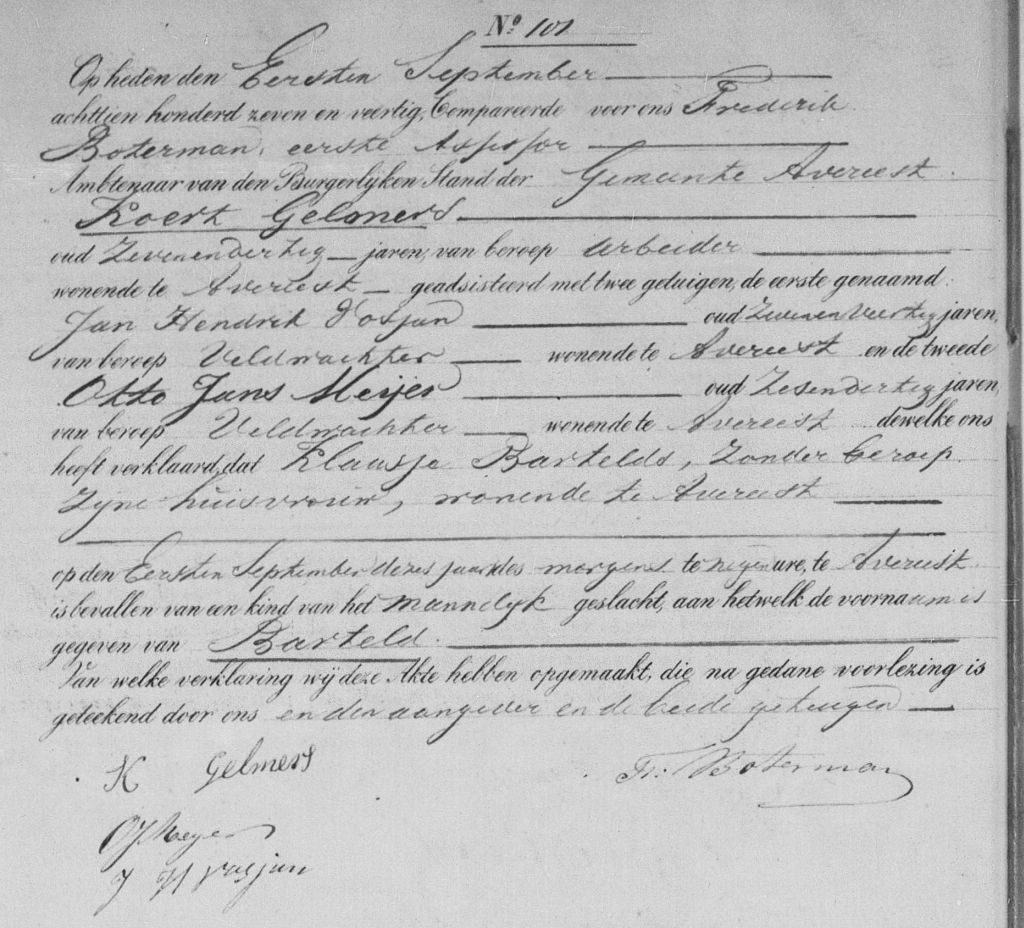 No 101
Op heden den Eersten September
achttien honderd zeven en veertig, Compareerde voor ons Frederik
Boterman, eerste Assessor
Ambtenaar van den Burgerlyken Stand der Gemeente Avereest.
Koert Gelmers
oud Zevenendertig jaren, van beroep Arbeider
wonende te Avereest geadsisteerd met twee getuigen, de eerste genaamd:
Jan Hendrik Vosjan oud Zevenenveertig jaren,
van beroep Veldwachter wonende te Avereest en de tweede
Otto Jans Meijer oud Zesendertig jaren,
van beroep Veldwachter wonende te Avereest dewelke ons
heeft verklaard, dat Klaasje Bartelds, Zonder beroep
Zyne huisvrouw, wonende te Avereest
op den Eersten September dezes jaars des morgens te negen ure, te Avereest
is bevallen van een kind van het Mannelyk geslacht, aan hetwelk de voornaam is
gegeven van Barteld.
Van welke verklaring wy deze Akte hebben opgemaakt, die na gedane voorlezing is
geteekend door ons en den aangever en de beide getuigen
K Gelmers Fr. Boterman
OJ Meyer
J H Vosjan